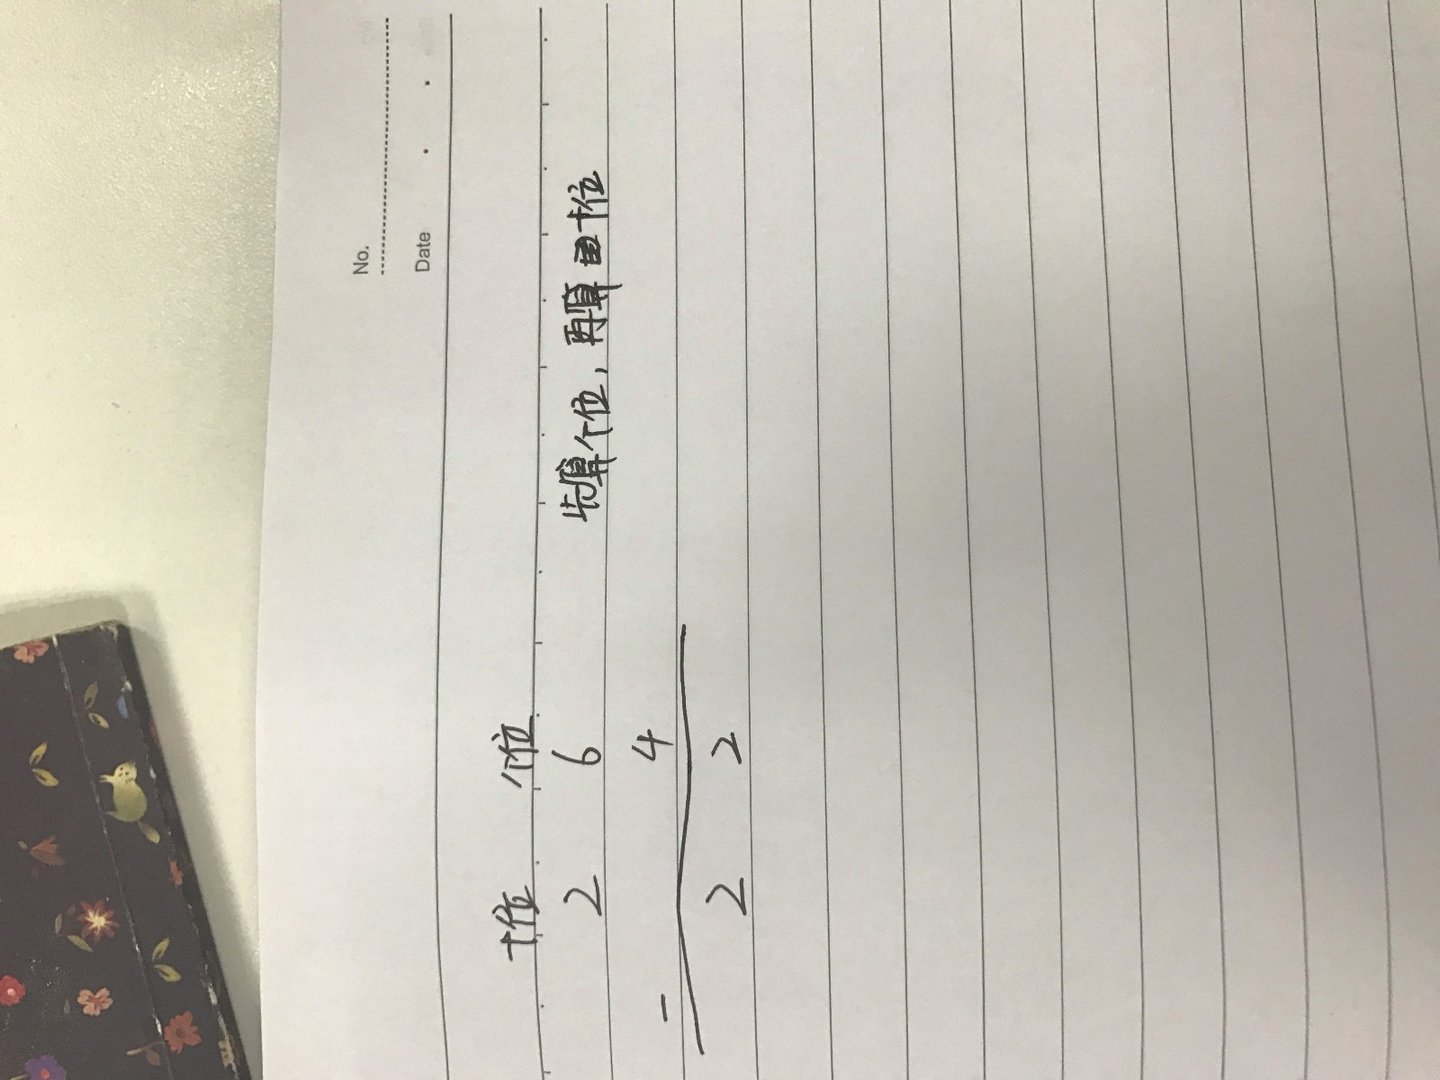 No.
Date
十位 个位
2 6 先算个位，再算十位
- 4
2 2